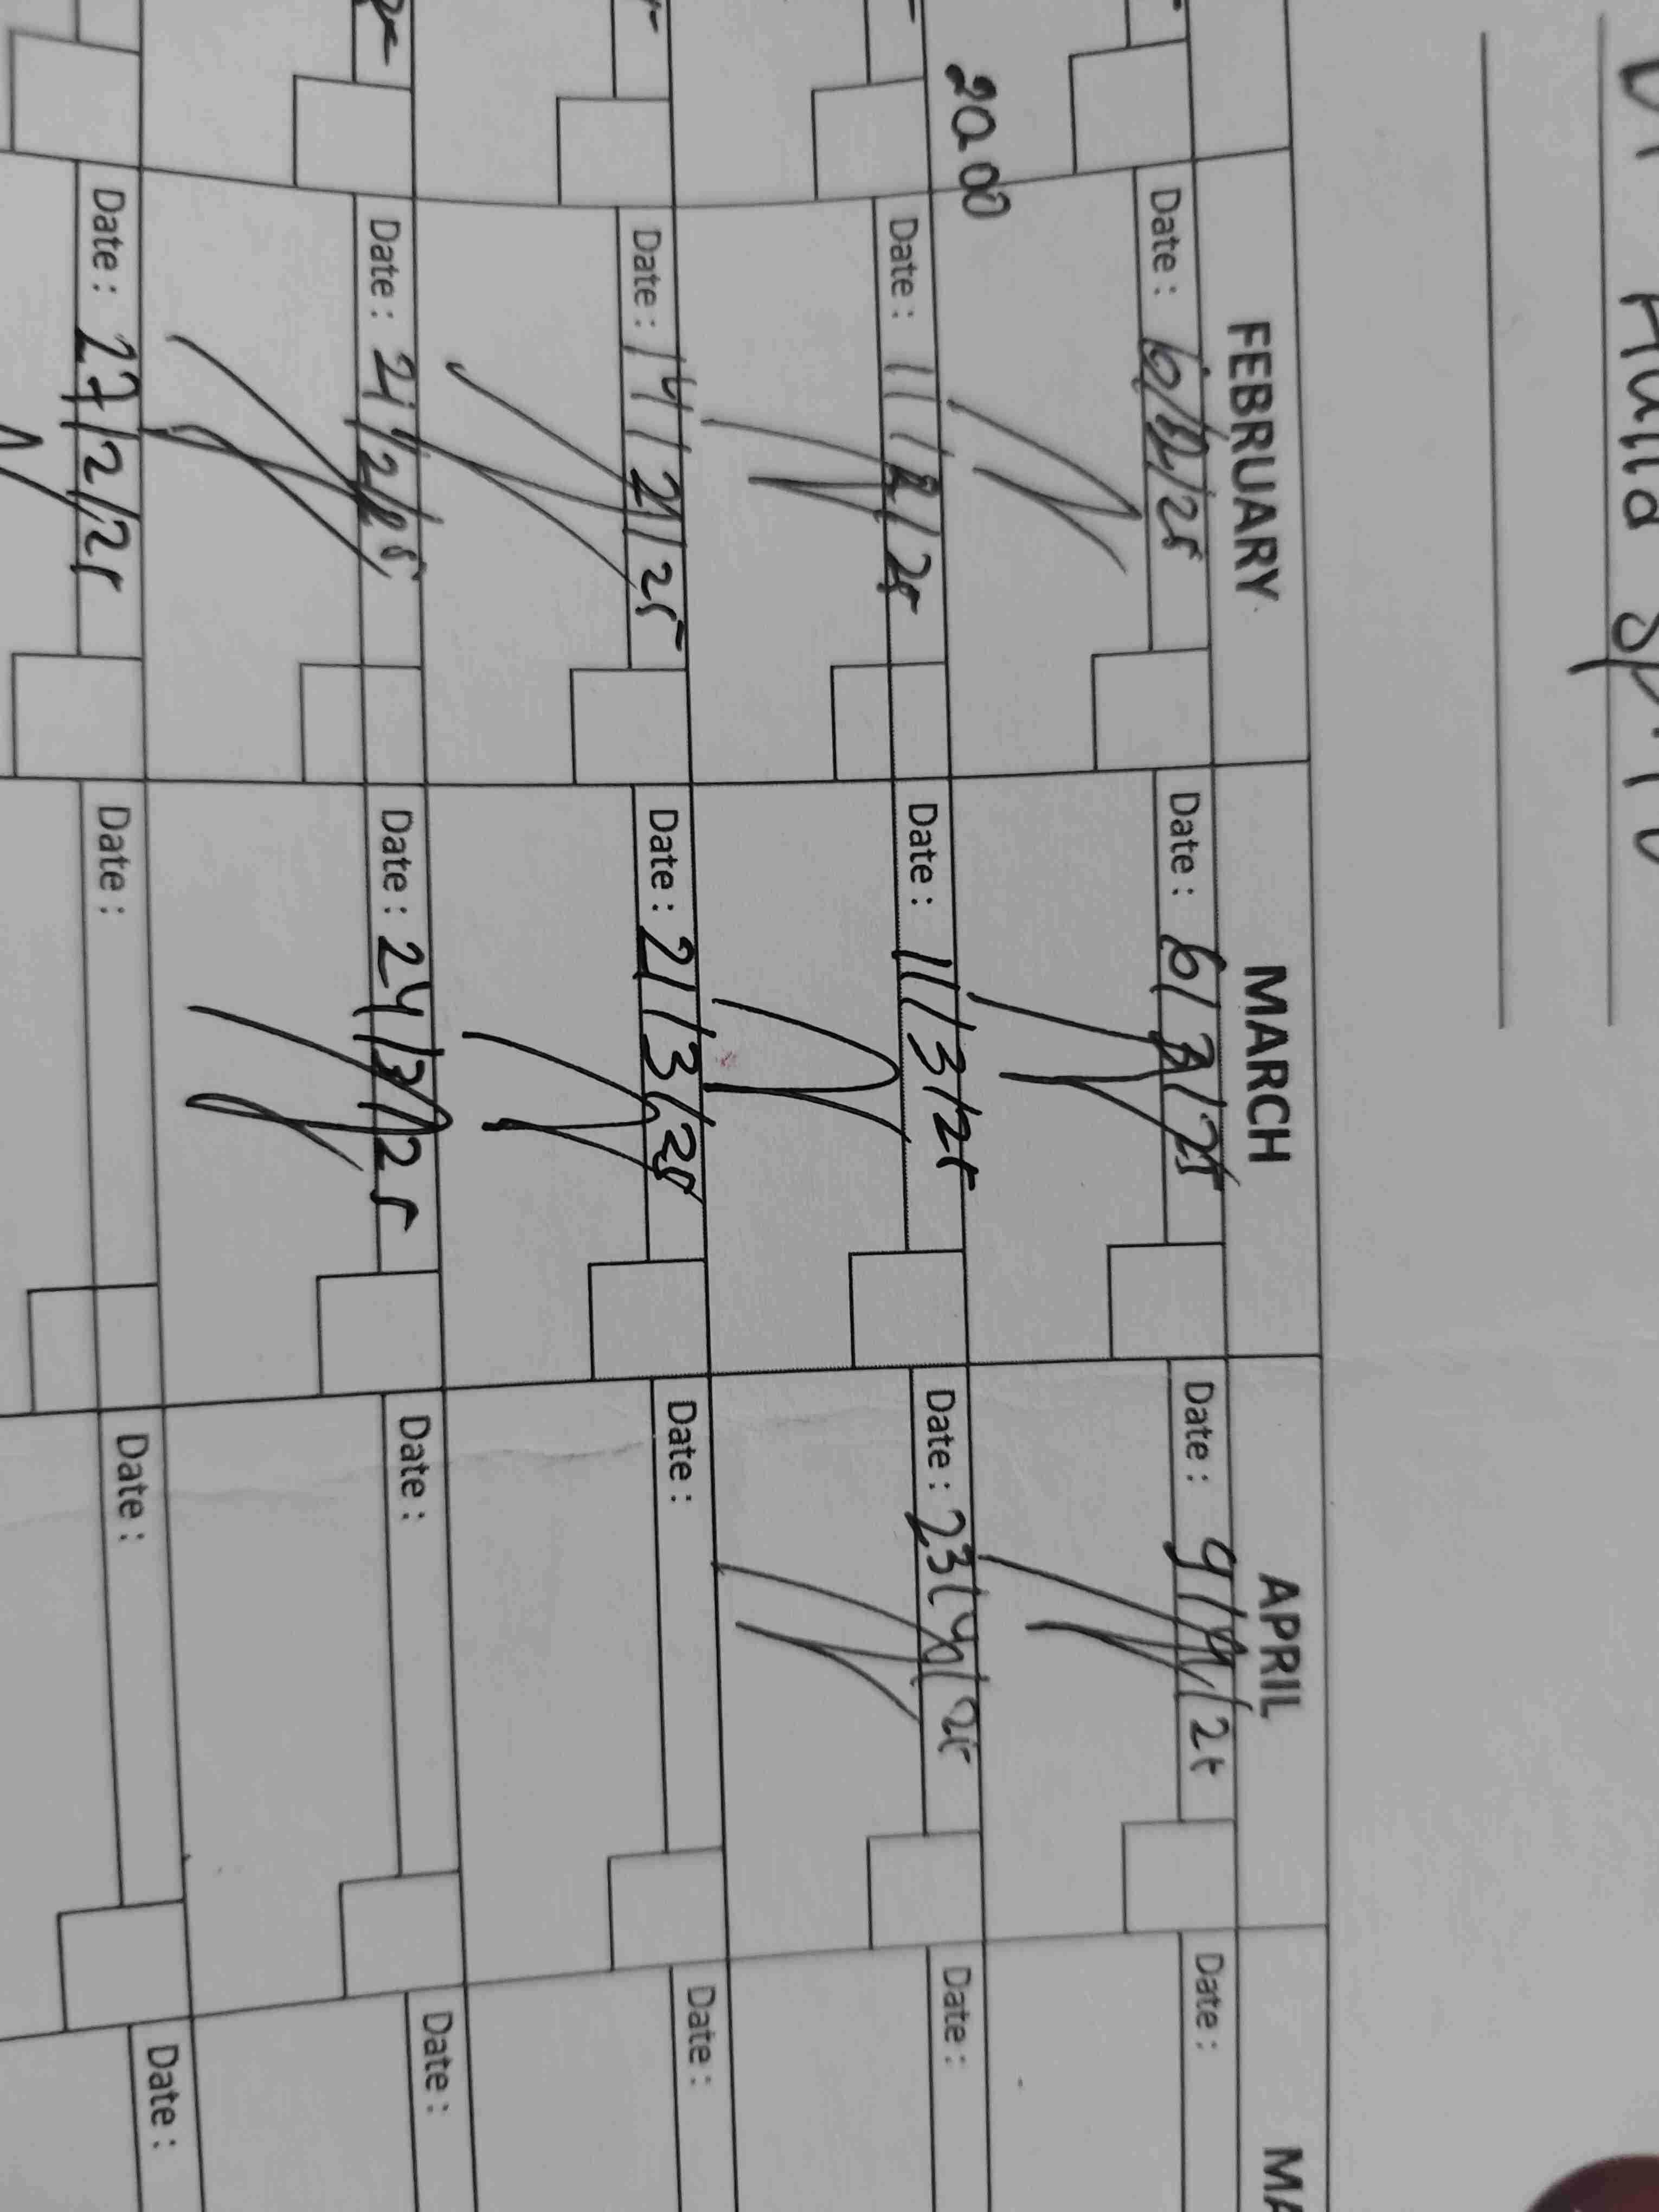 FEBRUARY MARCH APRIL
Date : 6/2/25 Date : 6/3/25 Date : 9/4/25 Date :
20.00
Date : 11/2/25 Date : 11/3/25 Date : 23/4/25 Date :
Date : 14/2/25 Date : 21/3/25 Date : Date :
Date : 21/2/25 Date : 24/3/25 Date : Date :
Date : 27/2/25 Date : Date : Date :